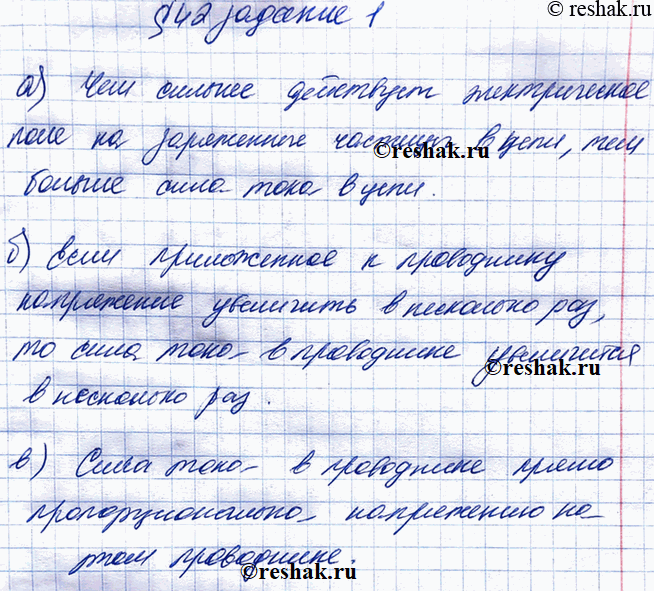 © reshak.ru
§42 задание 1
а) Чем сильнее действует электрическое
поле на заряженные частицы в цепи, тем
© reshak.ru
больше сила тока в цепи.
б) Если приложенное к проводнику
напряжение увеличить в несколько раз,
то сила тока в проводнике увеличится
© reshak.ru
в несколько раз.
в) Сила тока в проводнике прямо
пропорциональна напряжению на
этом проводнике.
© reshak.ru